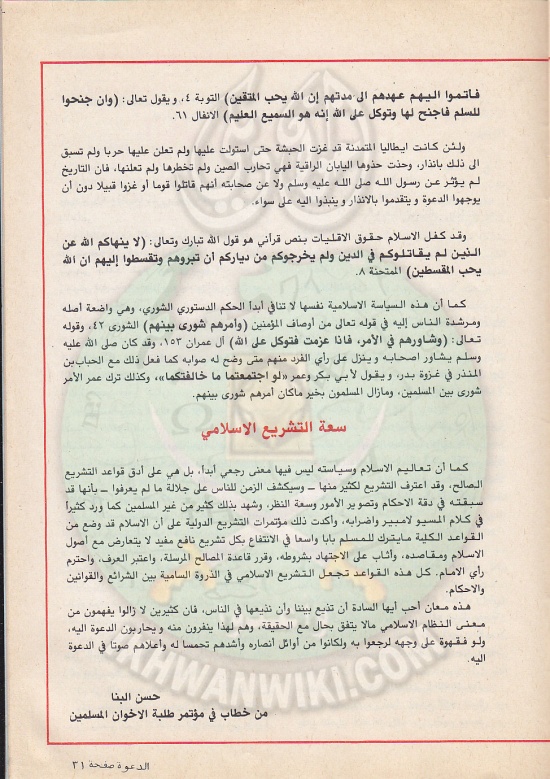 فأتموا اليهم عهدهم الى مدتهم إن الله يحب المتقين) التوبة ٤، ويقول تعالى: (وان جنحوا
للسلم فاجنح لها وتوكل على الله إنه هو السميع العليم) الانفال ٦١.
ولئن كانت ايطاليا المتمدنة قد غزت الحبشة حتى استولت عليها ولم تعلن عليها حربا ولم تسبق
الى ذلك بانذار، وحذت حذوها اليابان الراقية فهي تحارب الصين ولم تخطرها ولم تعلنها، فان التاريخ
لم يؤثر عن رسول الله صلى الله عليه وسلم ولا عن صحابته أنهم قاتلوا قوما أو غزوا قبيلا دون أن
يوجهوا الدعوة و يتقدموا بالانذار و ينبذوا اليه على سواء.
وقد كفل الاسلام حقوق الاقليات بنص قرآني هو قول الله تبارك وتعالى: (لا ينهاكم الله عن
الذين لم يقاتلوكم في الدين ولم يخرجوكم من دياركم أن تبروهم وتقسطوا إليهم ان الله
يحب المقسطين) الممتحنة ٨.
كما أن هذه السياسة الاسلامية نفسها لا تنافي أبدأ الحكم الدستوري الشوري، وهي واضعة أصله
ومرشدة الناس إليه في قوله تعالى من أوصاف المؤمنين (وأمرهم شورى بينهم) الشورى ٤٢، وقوله
تعالى: (وشاورهم في الأمر، فاذا عزمت فتوكل على الله) آل عمران ١٥٣، وقد كان صلى الله عليه
وسلم يشاور اصحابه و ينزل على رأي الفرد منهم متى وضح له صوابه كما فعل ذلك مع الحباب بن
المنذر في غزوة بدر، و يقول لأبي بكر وعمر «لو اجتمعتما ما خالفتكما»، وكذلك ترك عمر الأمر
شورى بين المسلمين، ومازال المسلمون بخير ماكان أمرهم شورى بينهم.
سعة التشريع الاسلامي
كما أن تعاليم الاسلام وسياسته ليس فيها معنى رجعي أبدأ، بل هي على أدق قواعد التشريع
الصالح، وقد اعترف التشريع لكثير منها – وسيكشف الزمن للناس على جلالة ما لم يعرفوا – بأنها قد
سبقته في دقة الاحكام وتصوير الأمور وسعة النظر، وشهد بذلك كثير من غير المسلمين كما ورد كثيراً
في كلام المسيو لامبير واضرابه، وأكدت ذلك مؤتمرات التشريع الدولية على أن الاسلام قد وضع من
القواعد الكلية مايترك للمسلم بابا واسعا في الانتفاع بكل تشريع نافع مفيد لا يتعارض مع أصول
الاسلام ومقاصده، وأثاب على الاجتهاد بشروطه، وقرر قاعدة المصالح المرسلة. واعتبر العرف، واحترم
رأي الامام. كل هذه القواعد تجعل التشريع الاسلامي في الذروة السامية بين الشرائع والقوانين
والاحكام.
هذه معان أحب أيها السادة أن تذيع بيننا وأن نذيعها في الناس، فان كثيرين لا زالوا يفهمون من
معنى النظام الاسلامي مالا يتفق بحال مع الحقيقة، وهم لهذا ينفرون منه و يحاربون الدعوة اليه،
ولو فقهوة على وجهه لرجعوا به ولكانوا من أوائل أنصاره وأشدهم تحمسا له وأعلاهم صوتا في الدعوة
اليه.
حسن البنا
من خطاب في مؤتمر طلبة الاخوان المسلمين
IKHWANWIKI.COM
الدعوة صفحة ٣١